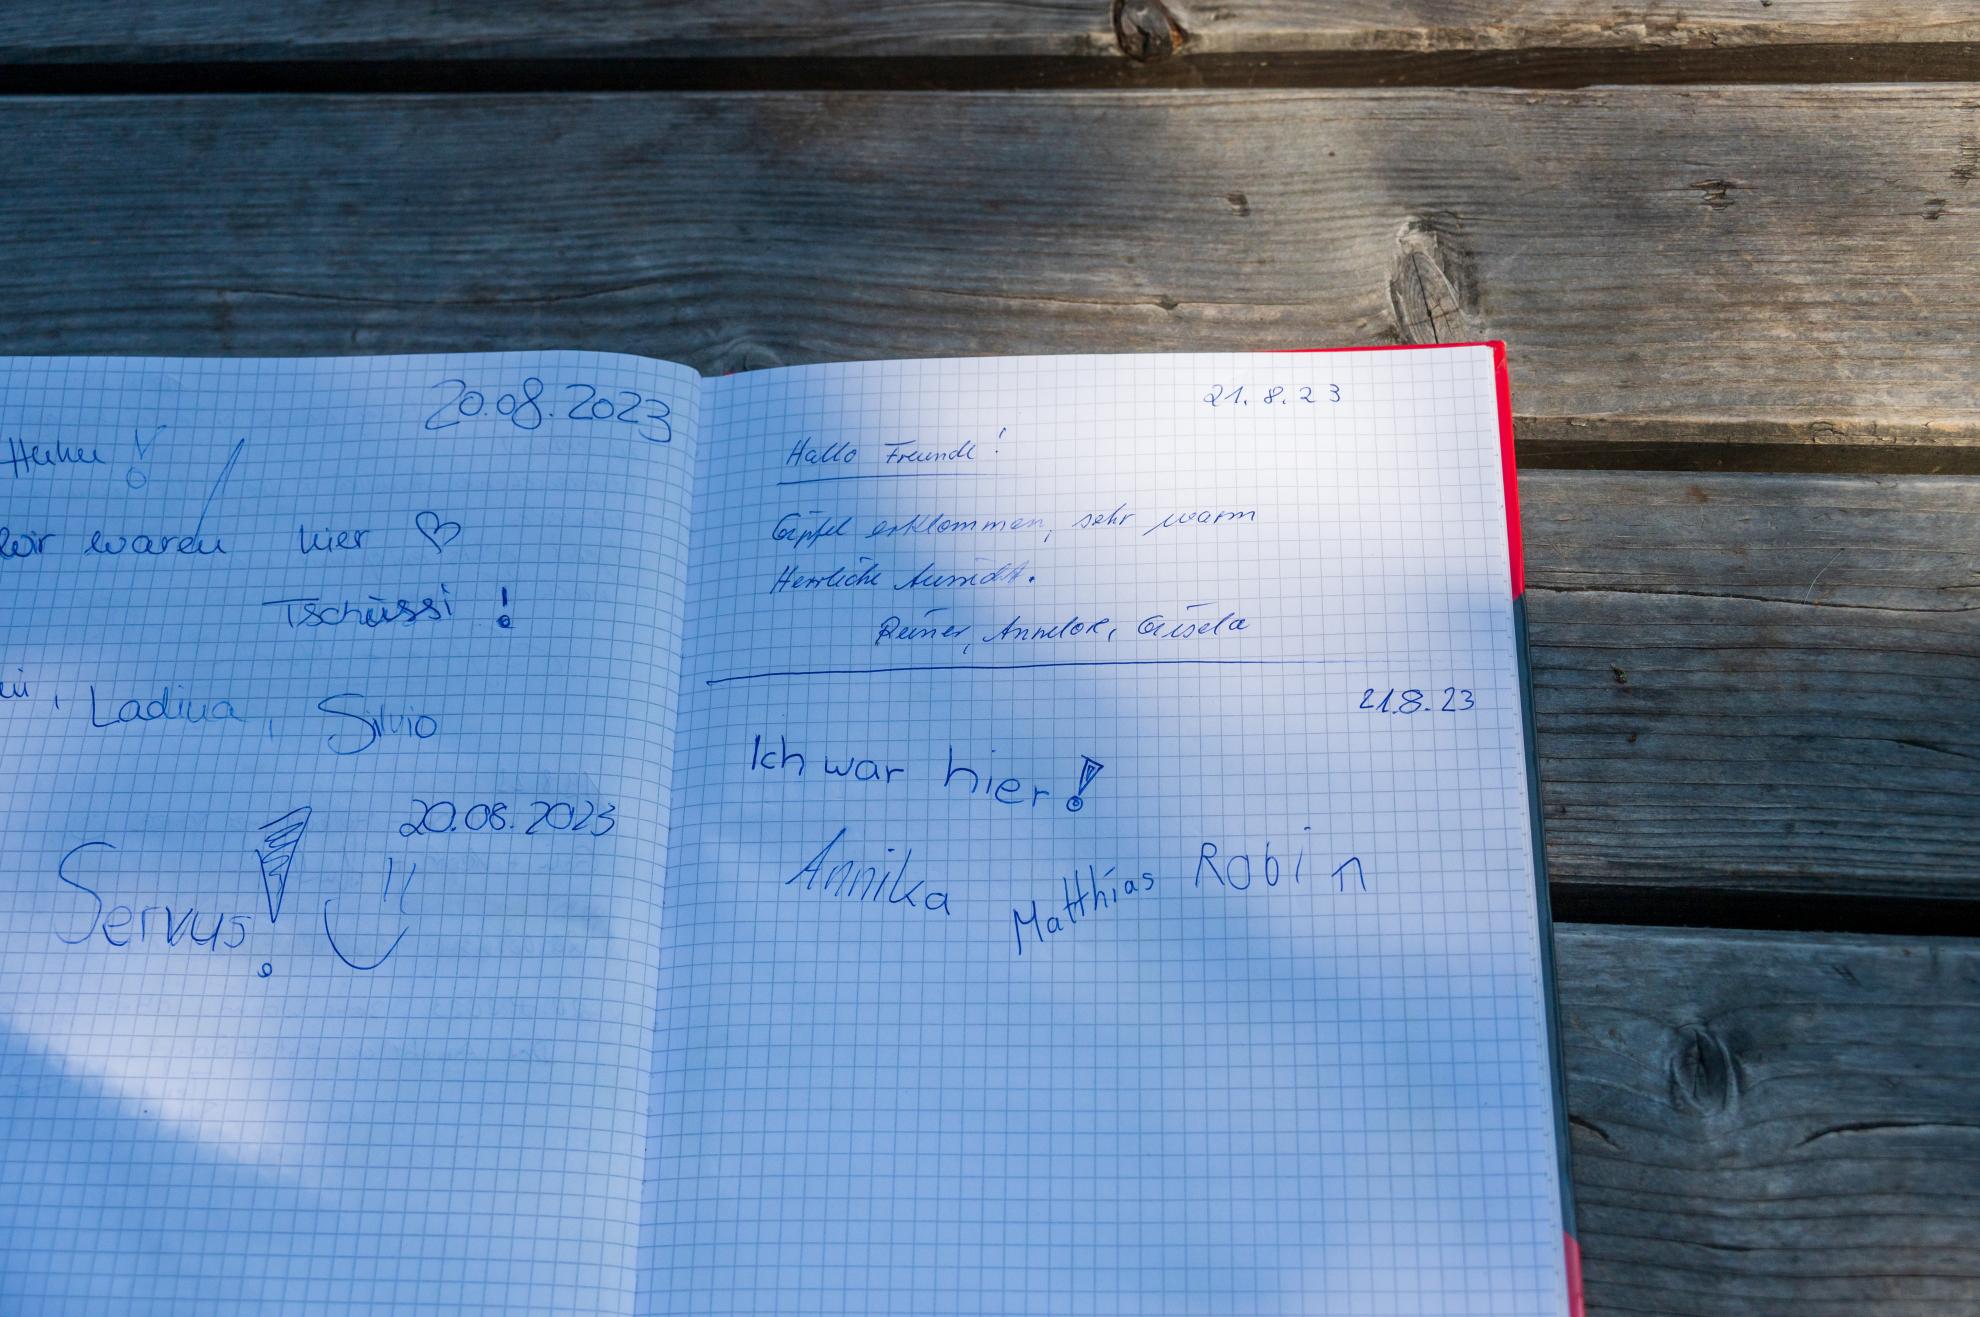 20.08.2023
Huhu!
Wir waren hier
Tschüssi!
Ladina, Silvio
20.08.2023
Servus!
21.8.23
Hallo Freunde!
Gipfel erklommen, sehr warm
Herrliche Aussicht.
Reiner, Annelore, Gisela
21.8.23
Ich war hier!
Annika Matthias Robin